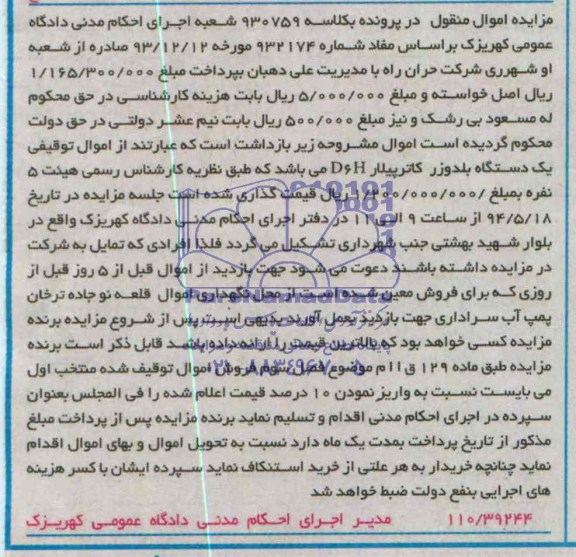 مزایده اموال منقول در پرونده بکلاسه ۹۳۰۷۵۹ شعبه اجرای احکام مدنی دادگاه
عمومی کهریزک براساس مفاد شماره ۹۳۲۱۷۴ مورخه ۹۳/۱۲/۱۲ صادره از شعبه
او شهرری شرکت حران راه با مدیریت علی دهبان بپرداخت مبلغ ۱/۱۶۵/۳۰۰/۰۰۰
ریال اصل خواسته و مبلغ ۵/۰۰۰/۰۰۰ ریال بابت هزینه کارشناسی در حق محکوم
له مسعود بی رشک و نیز مبلغ ۵۰۰/۰۰۰ ریال بابت نیم عشر دولتی در حق دولت
محکوم گردیده است اموال مشروحه زیر بازداشت است که عبارتند از اموال توقیفی
یک دستگاه بلدوزر کاترپیلار D۶H می باشد که طبق نظریه کارشناس رسمی هیئت ۵
نفره بمبلغ ۰۰/۰۰۰/۰۰۰ ریال قیمت گذاری شده است جلسه مزایده در تاریخ
۹۴/۵/۱۸ از ساعت ۹ الی ۱۱ در دفتر اجرای احکام مدنی دادگاه کهریزک واقع در
بلوار شهید بهشتی جنب شهرداری تشکیل می گردد فلذا افرادی که تمایل به شرکت
در مزایده داشته باشند دعوت می شود جهت بازدید از اموال قبل از ۵ روز قبل از
روزی که برای فروش معین شده است از محل نگهداری اموال قلعه نو جاده ترخان
پمپ آب سراداری جهت بازدید بعمل آورند بدیهی است پس از شروع مزایده برنده
مزایده کسی خواهد بود که بالاترین قیمت را ارائه داده باشد قابل ذکر است برنده
مزایده طبق ماده ۱۲۹ ق ا ا م موضوع فصل سوم فروش اموال توقیف شده منتخب اول
می بایست نسبت به واریز نمودن ۱۰ درصد قیمت اعلام شده را فی المجلس بعنوان
سپرده در اجرای احکام مدنی اقدام و تسلیم نماید برنده مزایده پس از پرداخت مبلغ
مذکور از تاریخ پرداخت بمدت یک ماه دارد نسبت به تحویل اموال و بهای اموال اقدام
نماید چنانچه خریدار به هر علتی از خرید استنکاف نماید سپرده ایشان با کسر هزینه
های اجرایی بنفع دولت ضبط خواهد شد
۱۱۰/۳۹۲۴۴ مدیر اجرای احکام مدنی دادگاه عمومی کهریزک